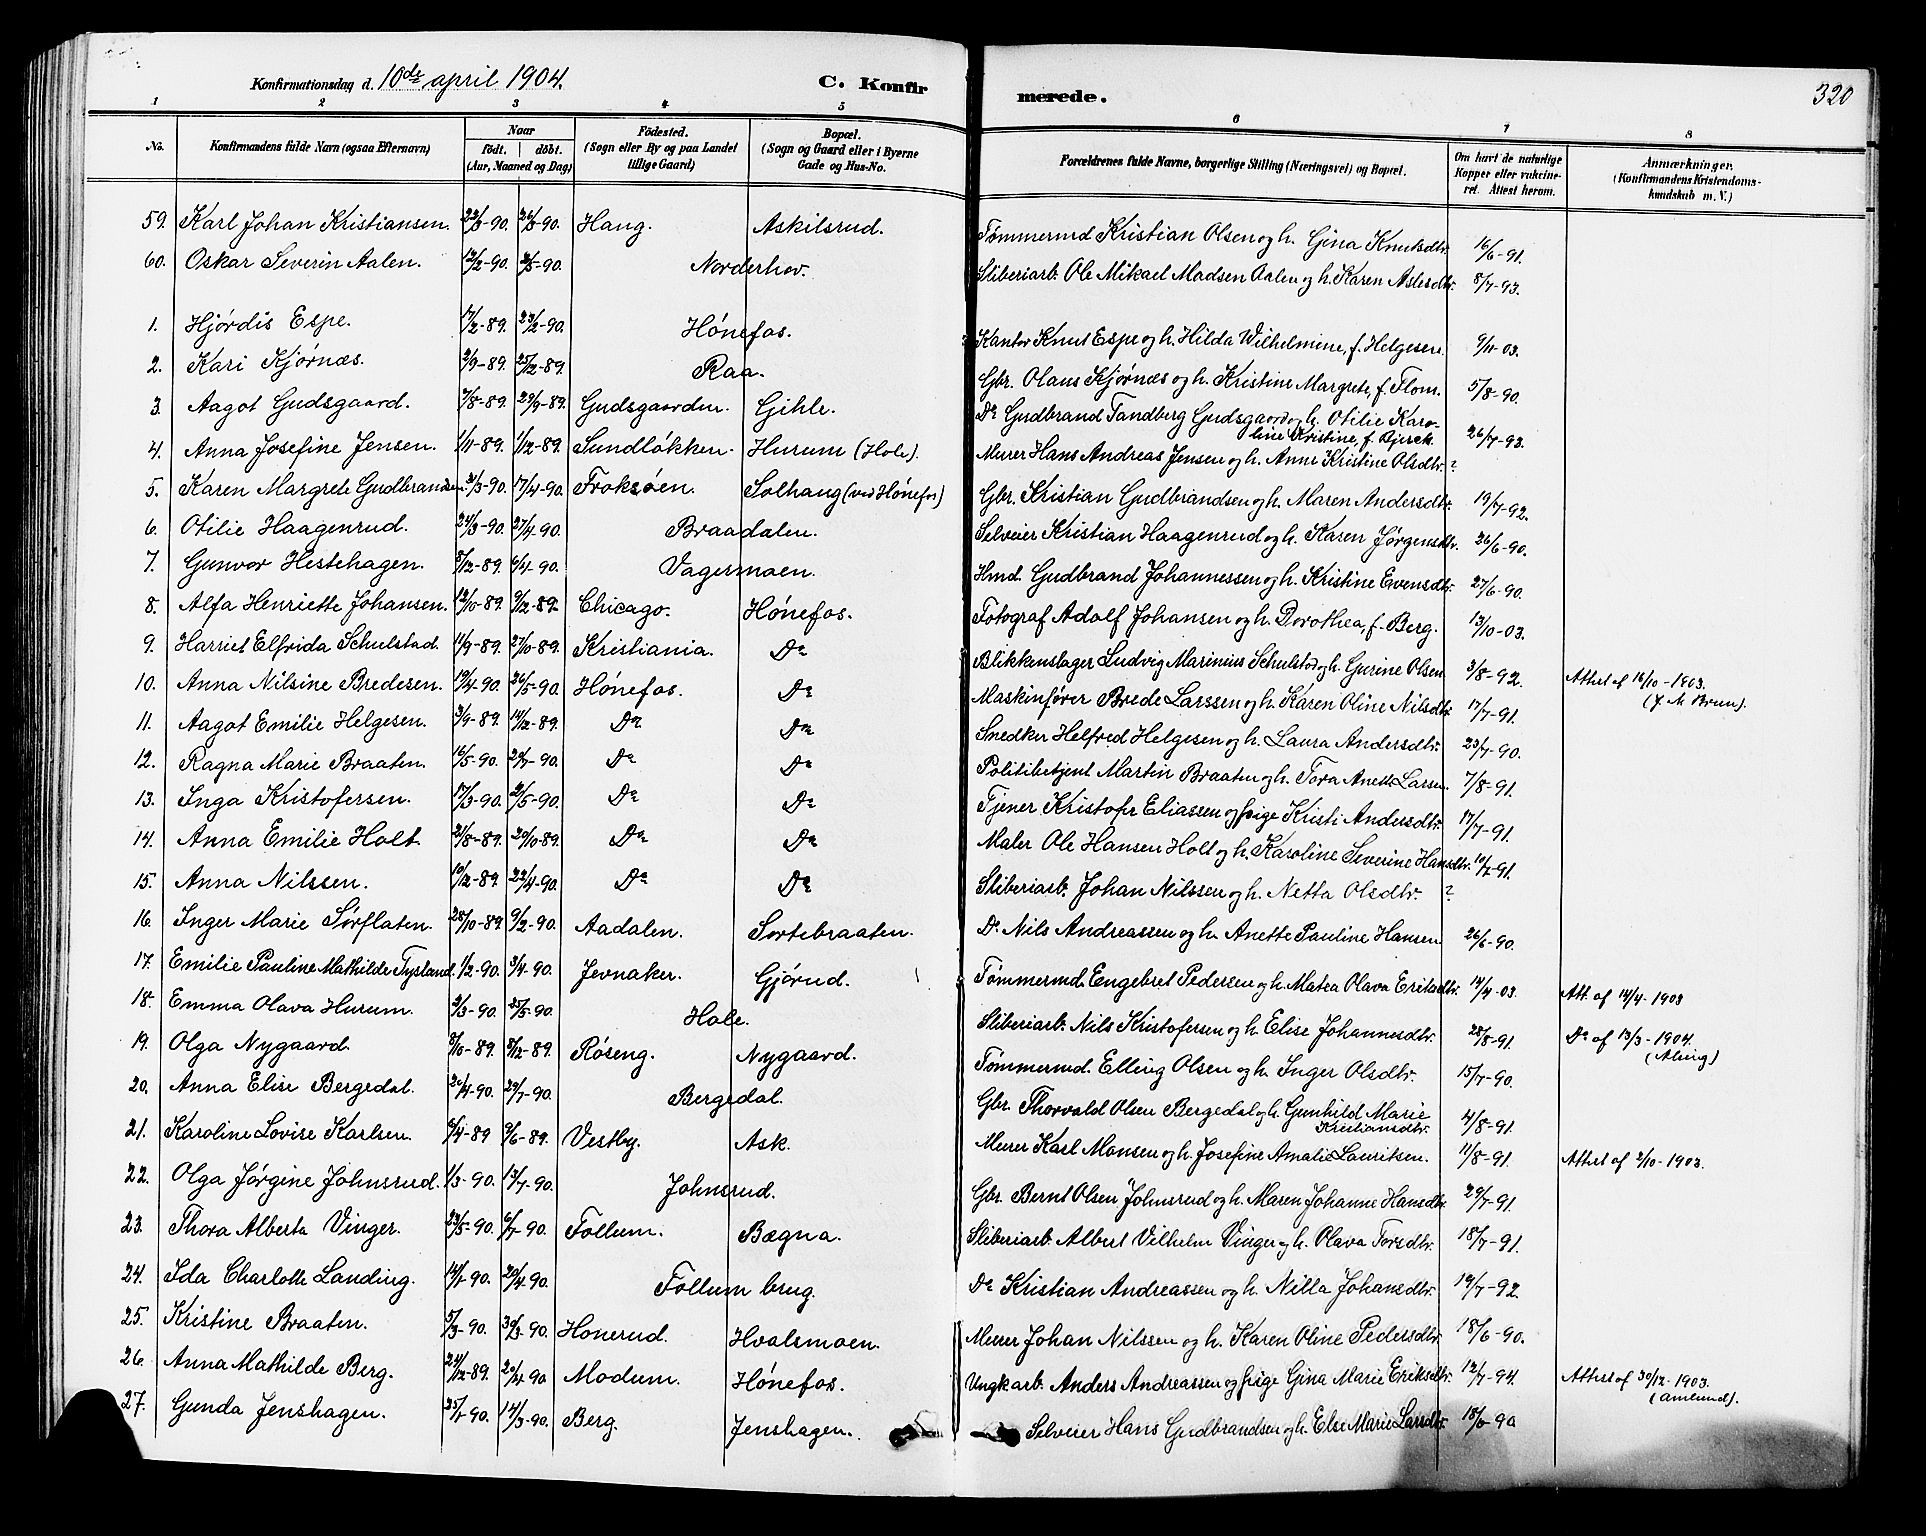 Konfirmationsdag d. 10de april 1904. C. Konfirmerede. 320
1 2 3 4 5 6 7 8
No. Konfirmandens fulde Navn (ogsaa Efternavn) Naar födt. döbt. (Aar, Maaned og Dag) Födested. (Sogn eller By og paa Landet tillige Gaard) Bopæl. (Sogn og Gaard eller i Byerne Gade og Hus-No. Forældrenes fulde Navne, borgerlige Stilling (Næringsvei) og Bopæl. Om havt de naturlige Kopper eller vakcineret. Attest herom. Anmærkninger. (Konfirmandens Kristendomskundskab m. V.)
59. Karl Johan Kristiansen. Haug. Askilsrud. Tømmermd Kristian Olsen og h. Gina Knutsdtr. 16/6-91.
60. Oskar Severin Aalen. 12/2-90. 2/5-90. Norderhov. Sliberiarb. Ole Mikael Madsen Aalen og h. Karen Aslesdtr. 8/7-93.
1. Hjørdis Espe. 17/2-89. 23/2-90. Hønefos. Kantor Knut Espe og h. Hilda Wilhelmine, f. Helgesen. 9/11-03.
2. Kari Kjørnæs. 2/9-89. 25/12-89. Raa. Gbr. Olaus Kjørnæs og h. Kristine Margrete, f. Flom. 5/8-90.
3. Aagot Gudsgaard. 7/8-89. 29/9-89. Gudsgaarden. Gihle. Do Gudbrand Tandberg Gudsgaard og h. Otilie Karo-
line Kristine, f. Bjerck. 26/7-93.
4. Anna Josefine Jensen. 1/11-89. 1/12-89. Sundløkken. Hurum (Hole). Murer Hans Andreas Jensen og h. Anne Kristine Olsdtr. ?
5. Karen Margrete Gudbrandsen. 31/3-90. 17/4-90. Froksøen. Solhaug (ved Hønefos) Gbr. Kristian Gudbrandsen og h. Maren Andersdtr. 19/7-92.
6. Otilie Haagenrud. 24/3-90. 27/4-90. Braadalen. Selveier Kristian Haagenrud og h. Karen Jørgensdtr. 26/6-90.
7. Gunvor Hestehagen. 8/12-89. 6/4-90. Vagermoen. Hmd. Gudbrand Johannessen og h. Kristine Evensdtr. 27/6-90.
8. Alfa Henriette Johansen. 12/10-89. 9/12-89. Chicago. Hønefos. Fotograf Adolf Johansen og h. Dorothea, f. Berg. 13/10-03.
9. Harriet Elfrida Schulstad. 11/9-89. 27/10-89. Kristiania. Do Blikkenslager Ludvig Marinius Schulstad og h. Gurine Olsen. 3/8-92. Attest af 16/10-1903.
(J. M. Brun).
10. Anna Nilsine Bredesen. 19/4-90. 26/5-90. Hønefos. Do Maskinfører Brede Larssen og h. Karen Oline Nilsdtr. 17/7-91.
11. Aagot Emilie Helgesen. 3/9-89. 14/12-89. Do Do Snedker Helfred Helgesen og h. Laura Andersdtr. 23/7-90.
12. Ragna Marie Braaten. 16/5-90. 20/7-90. Do Do Politibetjent Martin Braaten og h. Tora Anette Larsen. 7/8-91.
13. Inga Kristofersen. 17/3-90. 2/5-90. Do Do Tjener Kristofer Eliassen og pige Kristi Andersdtr. 17/7-91.
14. Anna Emilie Holt. 21/8-89. 20/10-89. Do Do Maler Ole Hansen Holt og h. Karoline Severine Hansdtr. 10/7-91.
15. Anna Nilssen. 10/12-89. 22/4-90. Do Do Sliberiarb. Johan Nilssen og h. Netta Olsdtr. ?
16. Inger Marie Sørflaten. 28/10-89. 9/2-90. Aadalen. Sortebraaten. Do Nils Andreassen og h. Anette Pauline Hansen. 26/6-90.
17. Emilie Pauline Mathilde Tysland. 1/2-90. 3/4-90. Jevnaker. Gjørud. Tømmermd. Engebret Pedersen og h. Matea Olava Eriksdtr. 14/4-03. Att. af 14/4-1903
18. Emma Olava Hurum. 2/3-90. 25/5-90. Hole. Sliberiarb. Nils Kristofersen og h. Elise Johannesdtr. 28/8-91. Do af 13/3-1904.
19. Olga Nygaard. 8/10-89. 8/12-89. Røseng. Nygaard. Tømmermd. Elling Olsen og h. Inger Olsdtr. 15/7-90.
20. Anna Elise Bergedal. 20/4-90. 29/7-90. Bergedal. Gbr. Thorvald Olsen Bergedal og h. Gunhild Marie
Kristiansdtr. 4/8-91.
21. Karoline Lovise Karlsen. 6/4-89 9/6-89. Vestby. Ask. Murer Karl Monsen og h. Josefine Amalie Lauritsen. 11/8-91. Attest af 2/10-1903.
22. Olga Jørgine Johnsrud. 1/3-90. 13/7-90. Johnsrud. Gbr. Bernt Olsen Johnsrud og h. Maren Johanne Hansdtr. 29/7-91.
23. Thora Alberta Vinger. 23/5-90. 6/7-90. Follum. Bægna. Sliberiarb. Albert Vilhelm Vinger og h. Olava Torsdtr. 18/7-91.
24. Ida Charlotte Landing. 14/1-90. 20/4-90. Follum brug. Do Kristian Andreassen og h. Nilla Johansdtr. 19/7-92.
25. Kristine Braaten. 5/3-90. 30/3-90. Honerud. Hvalsmoen. Murer Johan Nilssen og h. Karen Oline Pedersdtr. 18/6-90.
26. Anna Mathilde Berg. 24/12-89. 20/4-90 Modum. Hønefos. Ungkarb. Anders Andreassen og pige Gina Marie Eriksdtr. 12/7-94. Attest af 30/12-1903.
27. Gunda Jenshagen. 25/1-90. 14/3-90. Berg. Jenshagen. Selveier Hans Gudbrandsen og h. Else Marie Larsdtr. 18/6-90